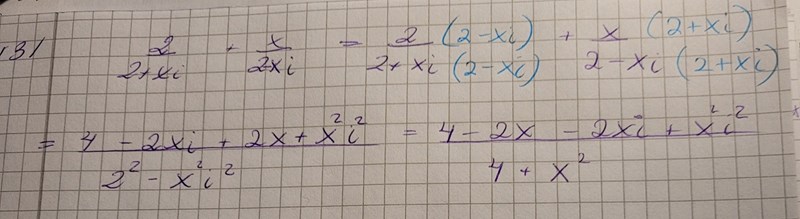 131 2/(2+xi) + x/(2xi) = 2/(2+xi) (2-xi)/(2-xi) + x/(2-xi) (2+xi)/(2+xi)
= (4 - 2xi + 2x + x²i²)/(2² - x²i²) = (4 - 2x - 2xi + x²i²)/(4 + x²)